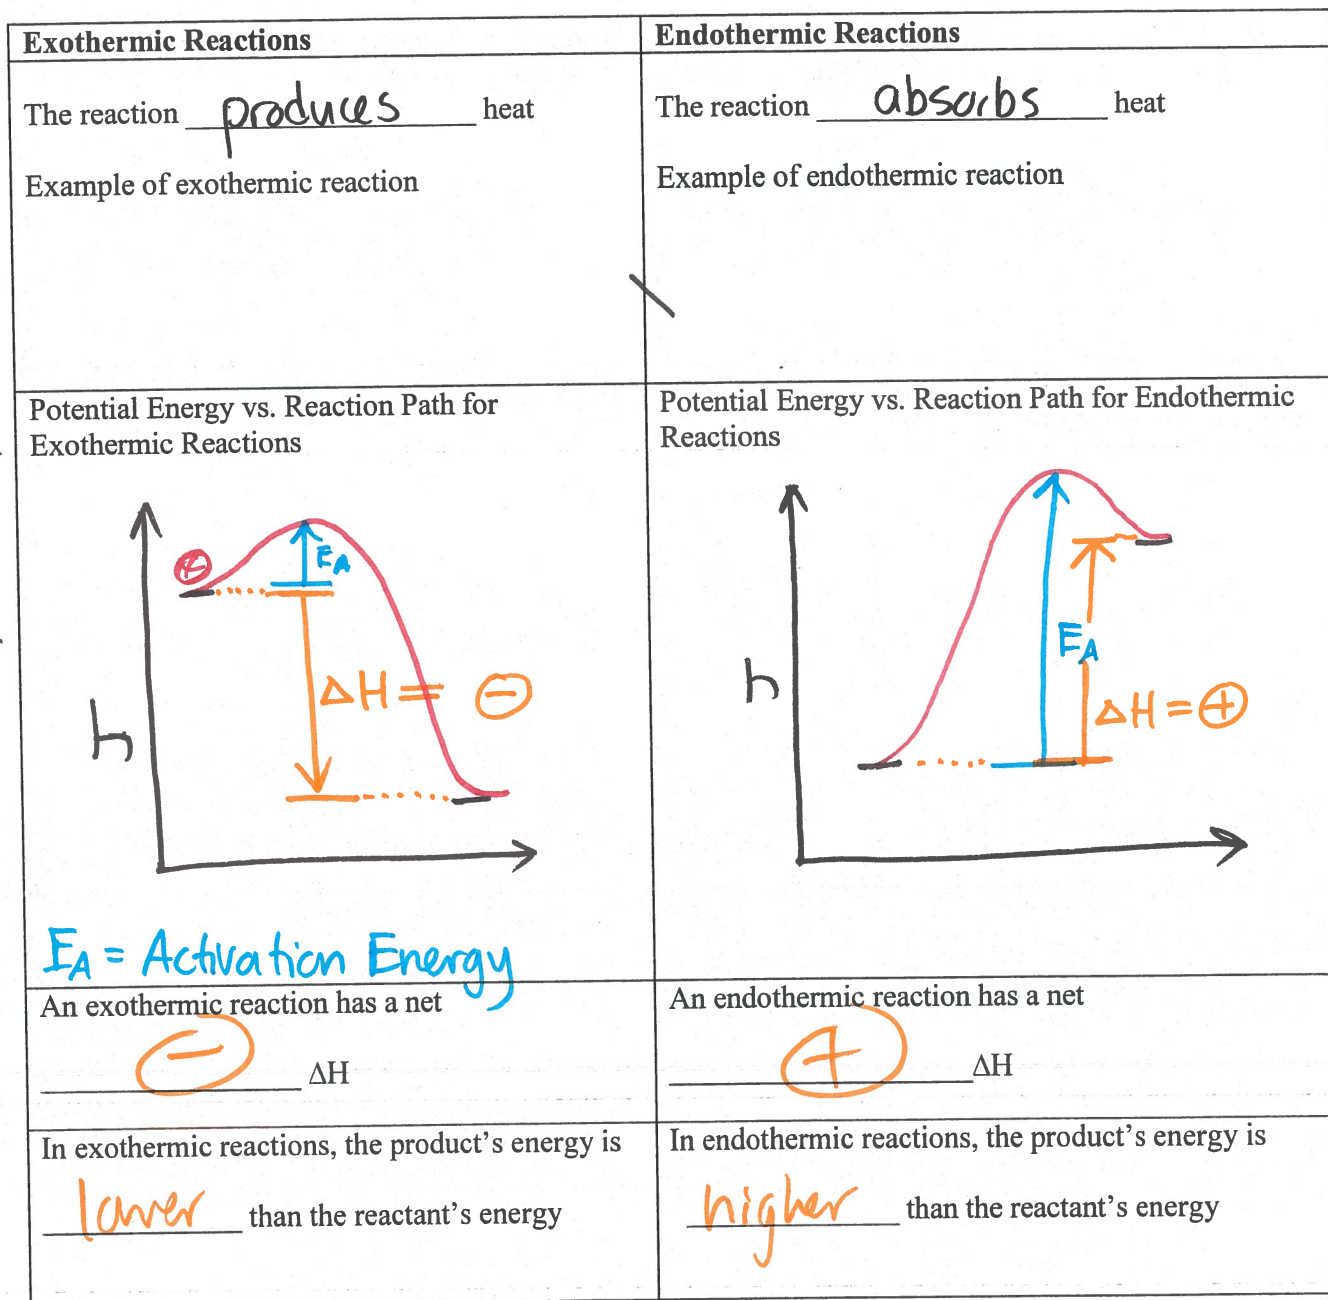 Exothermic Reactions
The reaction produces heat
Example of exothermic reaction
Endothermic Reactions
The reaction absorbs heat
Example of endothermic reaction
Potential Energy vs. Reaction Path for
Exothermic Reactions
EA
ΔH = ⊖
h
EA = Activation Energy
Potential Energy vs. Reaction Path for Endothermic
Reactions
EA
h
ΔH = ⊕
An exothermic reaction has a net
⊖ ΔH
An endothermic reaction has a net
⊕ ΔH
In exothermic reactions, the product's energy is
lower than the reactant's energy
In endothermic reactions, the product's energy is
higher than the reactant's energy